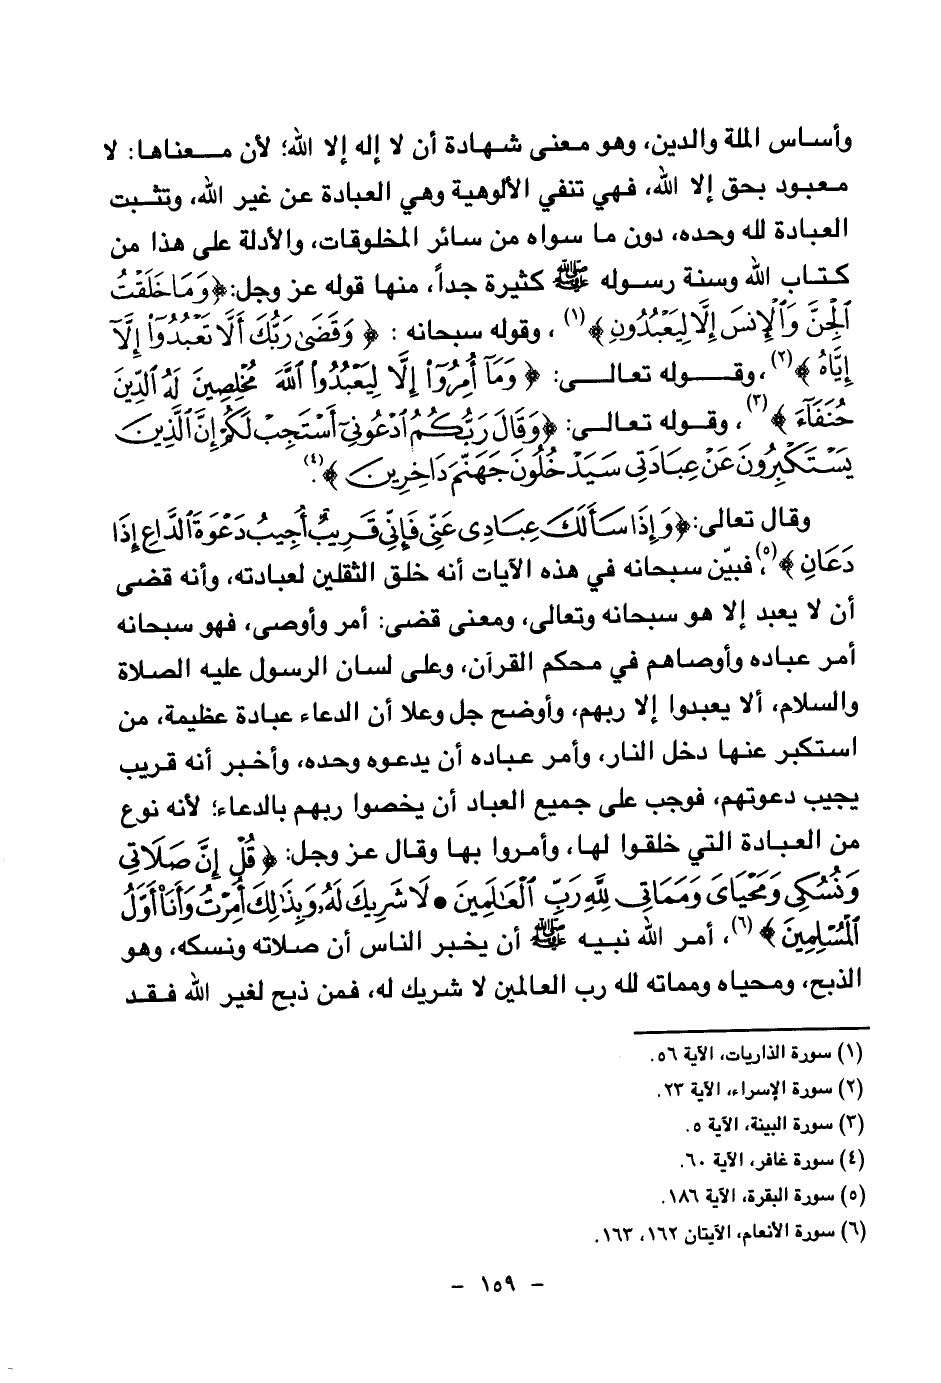 وأساس الملة والدين، وهو معنى شهادة أن لا إله إلا الله؛ لأن معناها: لا
معبود بحق إلا الله، فهي تنفي الألوهية وهي العبادة عن غير الله، وتثبت
العبادة لله وحده، دون ما سواه من سائر المخلوقات، والأدلة على هذا من
كتاب الله وسنة رسوله ﷺ كثيرة جداً، منها قوله عز وجل: ﴿وَمَا خَلَقْتُ
الْجِنَّ وَالْإِنسَ إِلَّا لِيَعْبُدُونِ﴾(١)، وقوله سبحانه: ﴿وَقَضَىٰ رَبُّكَ أَلَّا تَعْبُدُوا إِلَّا
إِيَّاهُ﴾(٢)، وقوله تعالى: ﴿وَمَا أُمِرُوا إِلَّا لِيَعْبُدُوا اللَّهَ مُخْلِصِينَ لَهُ الدِّينَ
حُنَفَاءَ﴾(٣)، وقوله تعالى: ﴿وَقَالَ رَبُّكُمُ ادْعُونِي أَسْتَجِبْ لَكُمْ إِنَّ الَّذِينَ
يَسْتَكْبِرُونَ عَنْ عِبَادَتِي سَيَدْخُلُونَ جَهَنَّمَ دَاخِرِينَ﴾(٤).
وقال تعالى: ﴿وَإِذَا سَأَلَكَ عِبَادِي عَنِّي فَإِنِّي قَرِيبٌ أُجِيبُ دَعْوَةَ الدَّاعِ إِذَا
دَعَانِ﴾(٥)، فبيّن سبحانه في هذه الآيات أنه خلق الثقلين لعبادته، وأنه قضى
أن لا يعبد إلا هو سبحانه وتعالى، ومعنى قضى: أمر وأوصى، فهو سبحانه
أمر عباده وأوصاهم في محكم القرآن، وعلى لسان الرسول عليه الصلاة
والسلام، ألا يعبدوا إلا ربهم، وأوضح جل وعلا أن الدعاء عبادة عظيمة، من
استكبر عنها دخل النار، وأمر عباده أن يدعوه وحده، وأخبر أنه قريب
يجيب دعوتهم، فوجب على جميع العباد أن يخصوا ربهم بالدعاء؛ لأنه نوع
من العبادة التي خلقوا لها، وأمروا بها وقال عز وجل: ﴿قُلْ إِنَّ صَلَاتِي
وَنُسُكِي وَمَحْيَايَ وَمَمَاتِي لِلَّهِ رَبِّ الْعَالَمِينَ • لَا شَرِيكَ لَهُ وَبِذَٰلِكَ أُمِرْتُ وَأَنَا أَوَّلُ
الْمُسْلِمِينَ﴾(٦)، أمر الله نبيه ﷺ أن يخبر الناس أن صلاته ونسكه، وهو
الذبح، ومحياه ومماته لله رب العالمين لا شريك له، فمن ذبح لغير الله فقد
(١) سورة الذاريات، الآية ٥٦.
(٢) سورة الإسراء، الآية ٢٣.
(٣) سورة البينة، الآية ٥.
(٤) سورة غافر، الآية ٦٠.
(٥) سورة البقرة، الآية ١٨٦.
(٦) سورة الأنعام، الآيتان ١٦٢، ١٦٣.
- ١٥٩ -